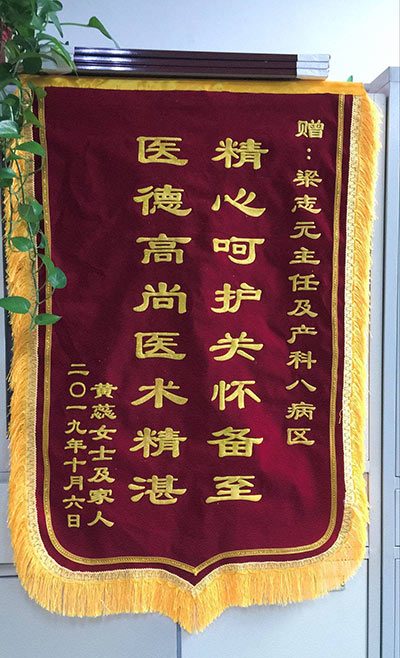 赠：梁志元主任及产科八病区
精心呵护关怀备至
医德高尚医术精湛
黄蕊女士及家人
二〇一九年十月六日